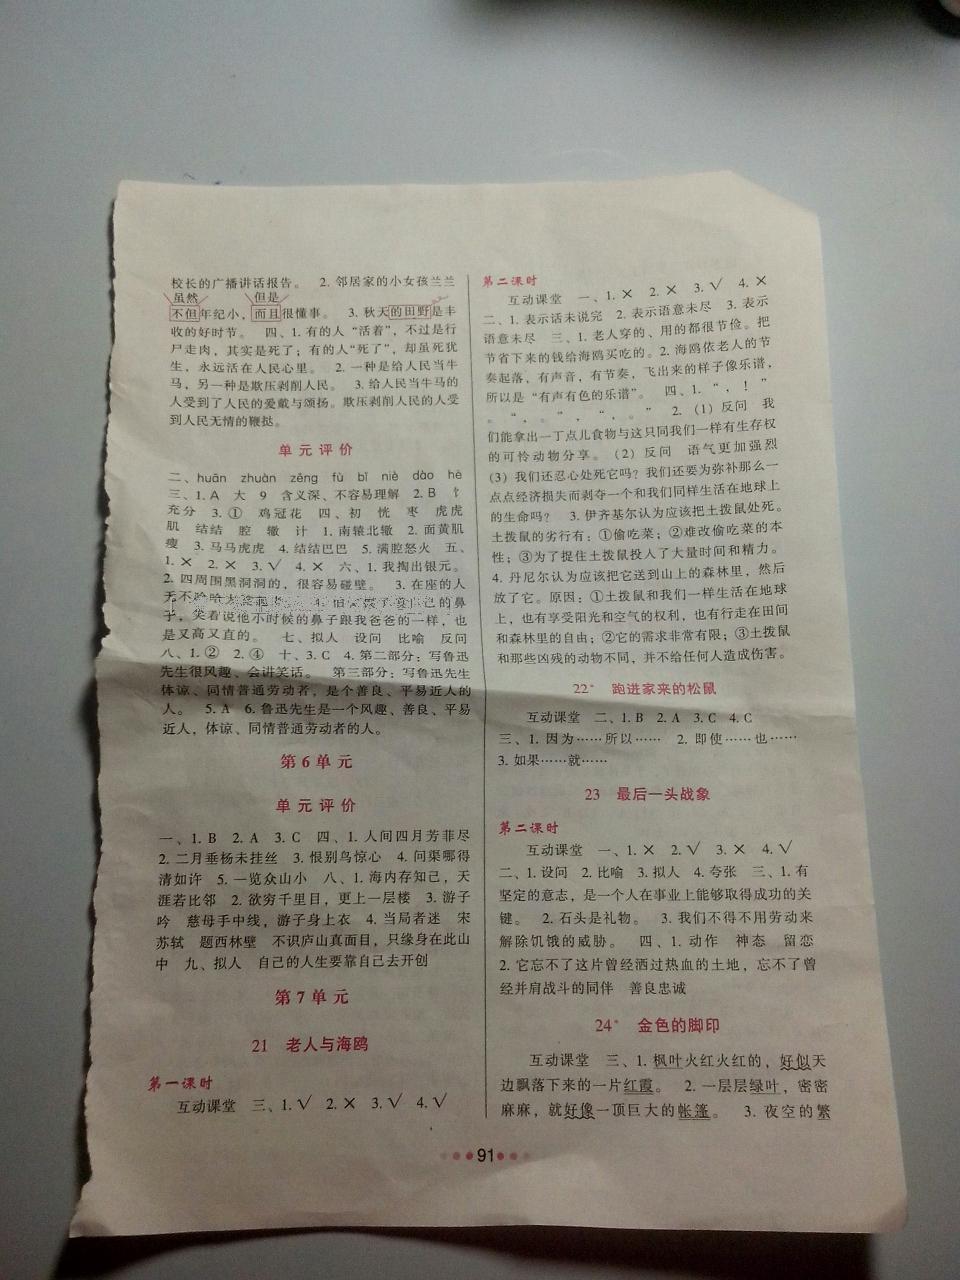 校长的广播讲话报告。 2. 邻居家的小女孩兰兰
虽然 但是
不但年纪小，而且很懂事。 3. 秋天的田野是丰
收的好时节。 四、1. 有的人“活着”，不过是行
尸走肉，其实是死了；有的人“死了”，却虽死犹
生，永远活在人民心里。 2. 一种是给人民当牛
马，另一种是欺压剥削人民。 3. 给人民当牛马的
人受到了人民的爱戴与颂扬。欺压剥削人民的人受
到人民无情的鞭挞。
单元评价
二、huān zhuàn zēng fù bǐ niè dào hē
三、1. A 大 9 含义深、不容易理解 2. B 忄
充分 3. ① 鸡冠花 四、初 恍 枣 虎虎
肌 结结 腔 辙 计 1. 南辕北辙 2. 面黄肌
瘦 3. 马马虎虎 4. 结结巴巴 5. 满腔怒火 五、
1. × 2. × 3. √ 4. × 六、1. 我掏出银元。
2. 四周围黑洞洞的，很容易碰壁。 3. 在座的人
子，笑着说他小时候的鼻子跟我爸爸的一样，也
是又高又直的。 七、拟人 设问 比喻 反问
八、1. ② 2. ④ 十、3. C 4. 第二部分：写鲁迅
先生很风趣、会讲笑话。 第三部分：写鲁迅先生
体谅、同情普通劳动者，是个善良、平易近人的
人。 5. A 6. 鲁迅先生是一个风趣、善良、平易
近人，体谅、同情普通劳动者的人。
第6单元
单元评价
一、1. B 2. A 3. C 四、1. 人间四月芳菲尽
2. 二月垂杨未挂丝 3. 恨别鸟惊心 4. 问渠哪得
清如许 5. 一览众山小 八、1. 海内存知己，天
涯若比邻 2. 欲穷千里目，更上一层楼 3. 游子
吟 慈母手中线，游子身上衣 4. 当局者迷 宋
苏轼 题西林壁 不识庐山真面目，只缘身在此山
中 九、拟人 自己的人生要靠自己去开创
第7单元
21 老人与海鸥
第一课时
互动课堂 三、1. √ 2. × 3. √ 4. √
第二课时
互动课堂 一、1. × 2. × 3. √ 4. ×
二、1. 表示话未说完 2. 表示语意未尽 3. 表示
语意未尽 三、1. 老人穿的、用的都很节俭。把
节省下来的钱给海鸥买吃的。2. 海鸥依老人的节
奏起落，有声音，有节奏，飞出来的样子像乐谱，
所以是“有声有色的乐谱”。 四、1. “，！”
。“ ，” ，“，。” 2. （1）反问 我
们能拿出一丁点儿食物与这只同我们一样有生存权
的可怜动物分享。（2）反问 语气更加强烈
（3）我们还忍心处死它吗？我们还要为弥补那么一
点点经济损失而剥夺一个和我们同样生活在地球上
的生命吗？ 3. 伊齐基尔认为应该把土拨鼠处死。
土拨鼠的劣行有：①偷吃菜；②难改偷吃菜的本
性；③为了捉住土拨鼠投人了大量时间和精力。
4. 丹尼尔认为应该把它送到山上的森林里，然后
放了它。原因：①土拨鼠和我们一样生活在地球
上，也有享受阳光和空气的权利，也有行走在田间
和森林里的自由；②它的需求非常有限；③土拨鼠
和那些凶残的动物不同，并不给任何人造成伤害。
22* 跑进家来的松鼠
互动课堂 二、1. B 2. A 3. C 4. C
三、1. 因为……所以…… 2. 即使……也……
3. 如果……就……
23 最后一头战象
第二课时
互动课堂 一、1. × 2. √ 3. × 4. √
二、1. 设问 2. 比喻 3. 拟人 4. 夸张 三、1. 有
坚定的意志，是一个人在事业上能够取得成功的关
键。 2. 石头是礼物。 3. 我们不得不用劳动来
解除饥饿的威胁。 四、1. 动作 神态 留恋
2. 它忘不了这片曾经洒过热血的土地，忘不了曾
经并肩战斗的同伴 善良忠诚
24* 金色的脚印
互动课堂 三、1. 枫叶火红火红的，好似天
边飘落下来的一片红霞。 2. 一层层绿叶，密密
麻麻，就好像一顶巨大的帐篷。 3. 夜空的繁
91